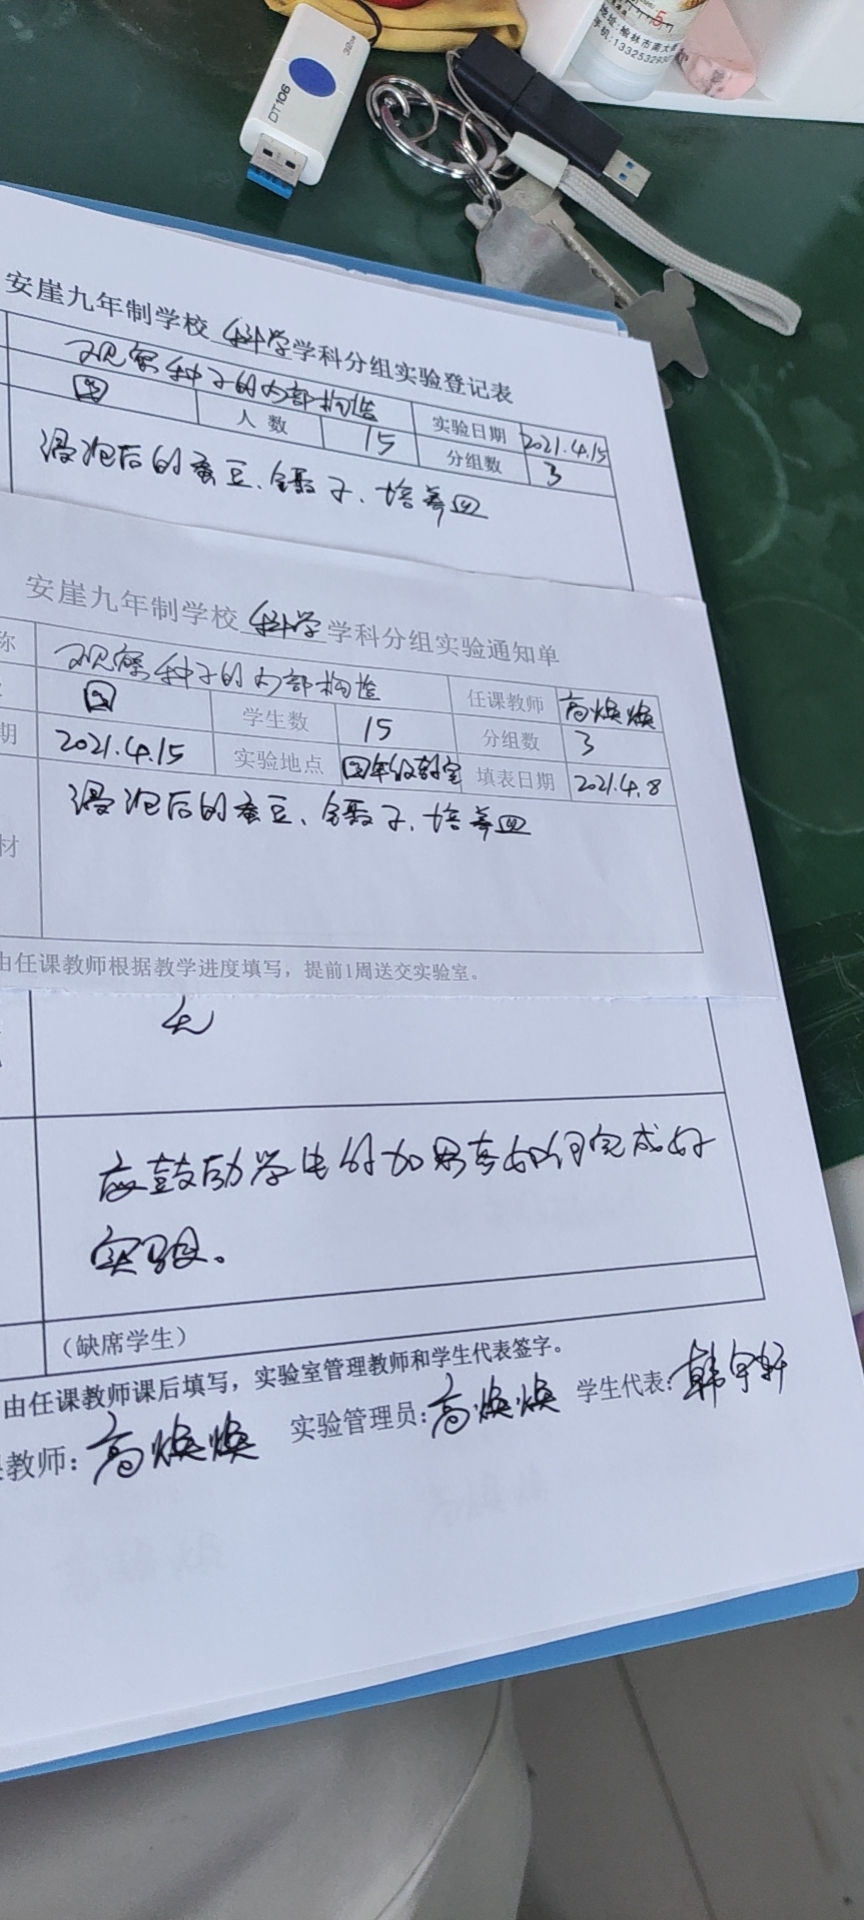 DT106
32GB
5
地址:榆林市南大
手机:1332532930
安崖九年制学校 科学学科分组实验登记表
观察种子的内部构造 实验日期 2021.4.15
四 人数 15 分组数 3
浸泡后的蚕豆、镊子、培养皿
安崖九年制学校 科学 学科分组实验通知单
称 观察种子的内部构造 任课教师 高焕焕
四 学生数 15 分组数 3
期 2021.4.15 实验地点 四年级教室 填表日期 2021.4.8
材 浸泡后的蚕豆、镊子、培养皿
由任课教师根据教学进度填写，提前1周送交实验室。
无
应鼓励学生
如何完成好
实验。
（缺席学生）
由任课教师课后填写，实验室管理教师和学生代表签字。
教师：高焕焕 实验管理员：高焕焕 学生代表：韩宇轩